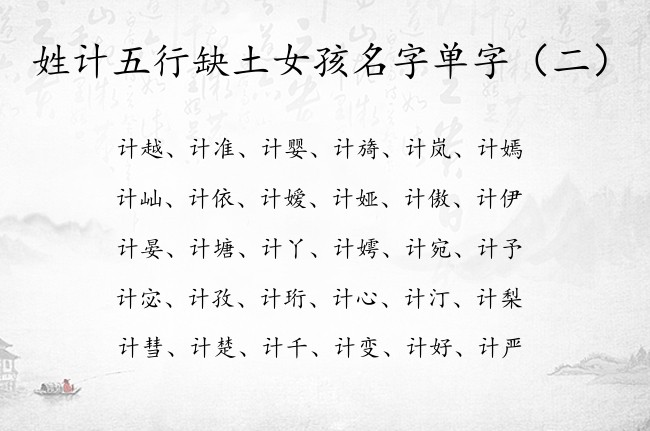 姓计五行缺土女孩名字单字（二）
计越、计准、计婴、计旖、计岚、计嫣
计屾、计依、计嫒、计娅、计傲、计伊
计晏、计塘、计丫、计嫮、计宛、计予
计宓、计孜、计珩、计心、计汀、计梨
计彗、计楚、计千、计变、计好、计严